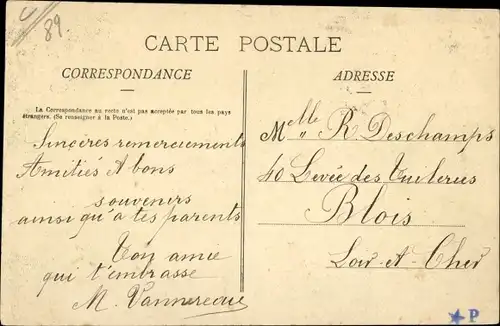 89
CARTE POSTALE
CORRESPONDANCE
La Correspondance au recto n'est pas acceptée par tous les pays
étrangers. (Se renseigner à la Poste.)
Sincères remerciements
Amitiés & bons
souvenirs
ainsi qu'à tes parents
Ton amie
qui t'embrasse
M. Vannereau
ADRESSE
Melle R Deschamps
40 Levée des Tuileries
Blois
Loir-et-Cher
P